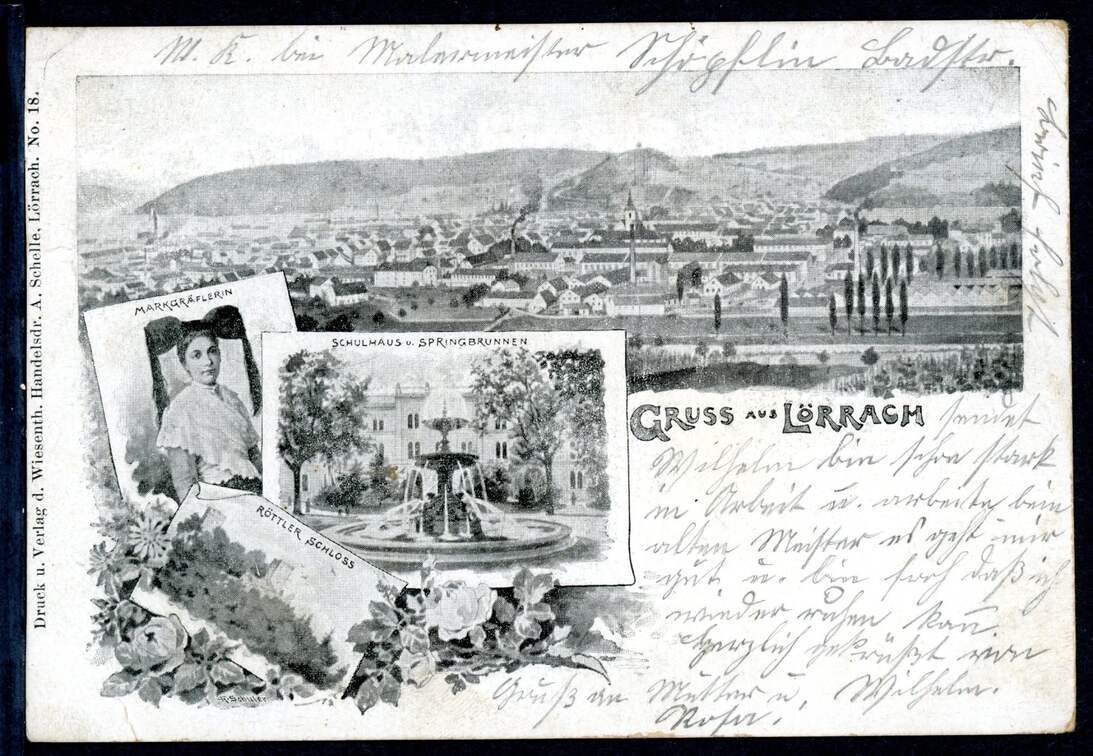 M. K. bei Malermeister Schöpflin Badstr.
Druck u. Verlag d. Wiesenth. Handelsdr. A. Schelle, Lörrach. No. 18.
MARKGRÄFLERIN
SCHULHAUS U. SPRINGBRUNNEN
RÖTTLER SCHLOSS
GRUSS AUS LÖRRACH sendet
Wilhelm bin schon stark
in Arbeit u. arbeite beim
alten Meister es geht mir
gut u. bin froh daß ich
wieder ruhen kann
Herzlich gekrüßt von
Gruß an Mutter u. Wilhelm.
Rosa.
F. Schuler